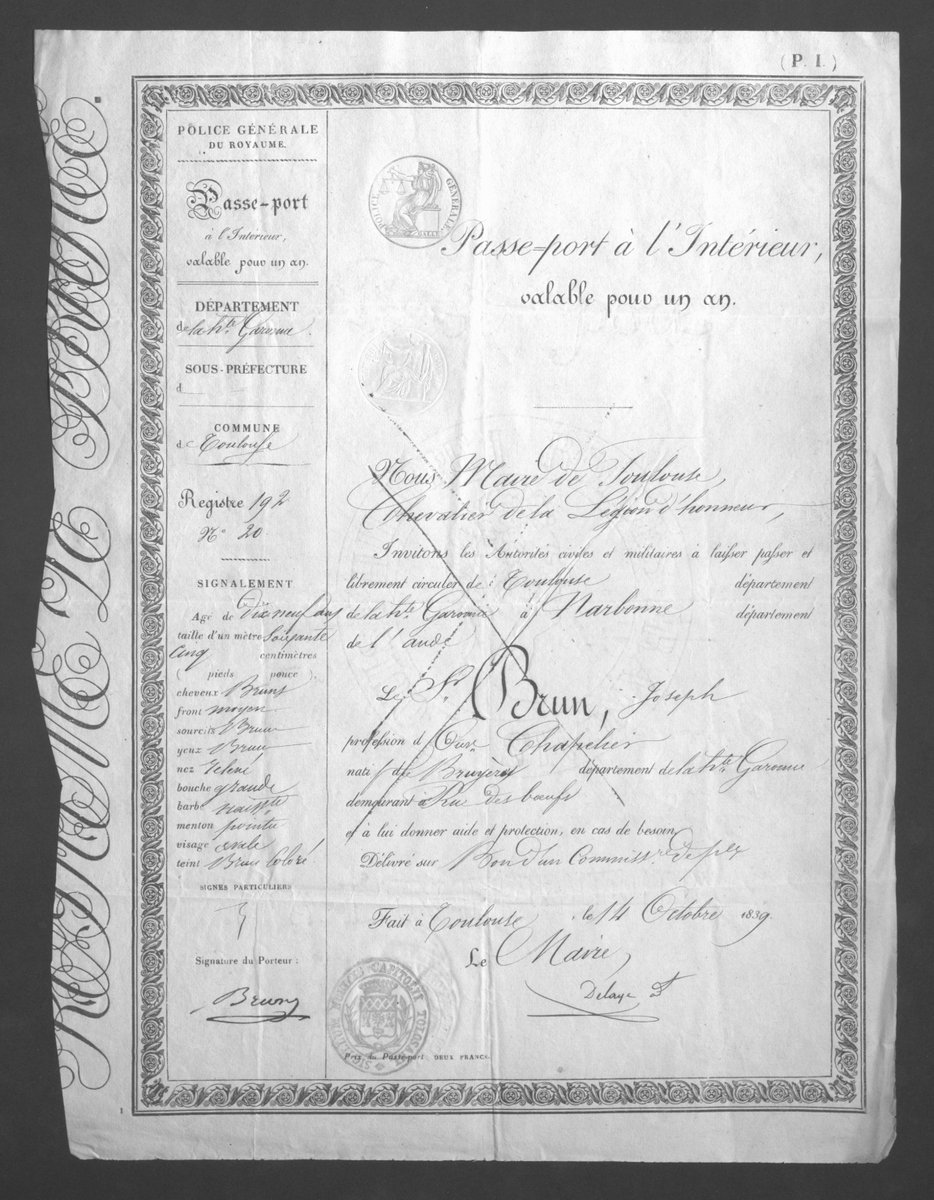 ( P. I. )
POLICE GÉNÉRALE
DU ROYAUME.
Passe-port
à l'Intérieur,
valable pour un an.
DÉPARTEMENT
de la hte Garonne
SOUS-PRÉFECTURE
d
COMMUNE
d Toulouse
Registre 192
N° 20
SIGNALEMENT
Agé de Dix neuf ans
taille d'un mètre Soixante
Cinq centimètres
( pieds pouce ).
cheveux Bruns
front moyen
sourcils Bruns
yeux Bruns
nez
bouche grande
barbe naiste
menton pointu
visage ovale
teint Brun Coloré
SIGNES PARTICULIERS
Signature du Porteur :
Brun
POLICE GÉNÉRALE
Passe-port à l'Intérieur,
valable pour un an.
Nous Maire de Toulouse,
Chevalier de la Légion d'honneur,
Invitons les Autorités civiles et militaires à laisser passer et
librement circuler de Toulouse département
de la hte Garonne à Narbonne département
de l'aude
Le Sr Brun, Joseph
profession d Chapélier
natif de département de la hte Garonne
demeurant à Rue des bœufs
et à lui donner aide et protection, en cas de besoin,
Délivré sur Bon d'un Commissre de plce
Fait à Toulouse, le 14 Octobre 1839.
Le Maire
Delaye
Prix du Passe-port, DEUX FRANCS.
ROYAUME DE FRANCE